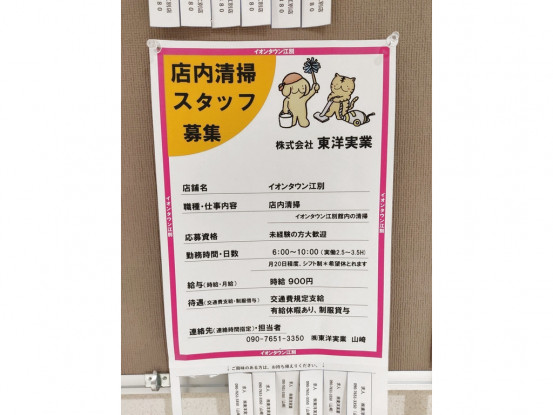 イオンタウン江別
店内清掃
スタッフ
募集
株式会社 東洋実業
店舗名 イオンタウン江別
職種・仕事内容 店内清掃
イオンタウン江別館内の清掃
応募資格 未経験の方大歓迎
勤務時間・日数 6:00~10:00 (実働2.5~3.5H)
月20日程度、シフト制*希望休とれます
給与(時給・月給) 時給 900円
待遇(交通費支給・制服借与) 交通費規定支給
有給休暇あり、制服貸与
連絡先(連絡時間指定)・担当者
090-7651-3350 ㈱東洋実業 山崎
イオンタウン江別
イオンタウン江別
イオンタウン江別
(ご興味のある方は、お持ち帰りください)